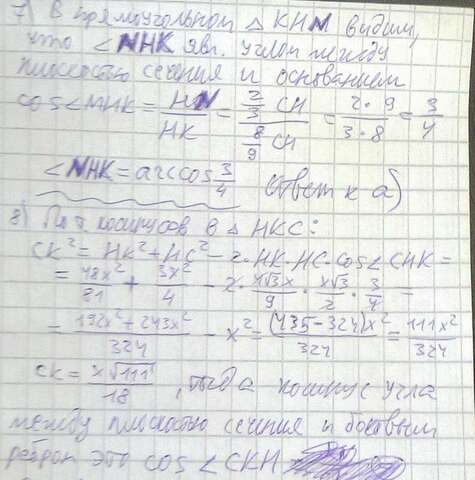 7) В прямоугольном △ KHN видим,
что ∠NHK явл. углом между
плоскостью сечения и основанием
cos∠NHK = HN/HK = (2/3 CH)/(8/9 CH) = (2·9)/(3·8) = 3/4
∠NHK = arccos 3/4 ответ к а)
8) По т. косинусов в △ HKC:
CK² = HK² + HC² - 2·HK·HC·cos∠CHK =
= 48x²/81 + 3x²/4 - 2·4√3x/9·x√3/2·3/4 =
= (192x² + 243x²)/324 - x² = (435-324)x²/324 = 111x²/324
CK = x√111/18, тогда косинус угла
между плоскостью сечения и боковым
ребром это cos∠CKH